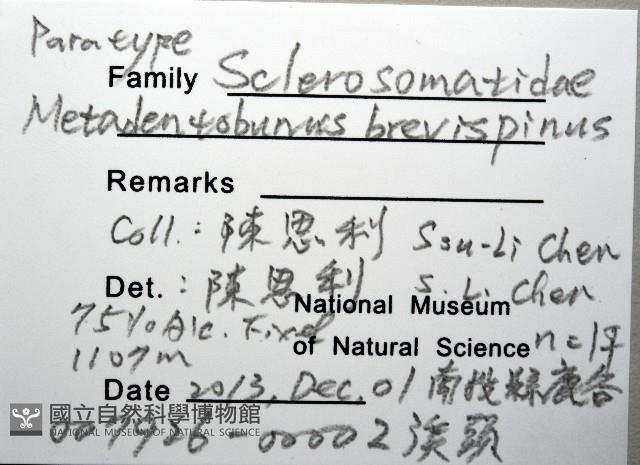 Paratype
Family Sclerosomatidae
Metadentobunus brevispinus
Remarks
Coll.: 陳思利 Ssu-Li Chen
Det.: 陳思利 S. Li Chen
75% Alc. Fixed National Museum
1107m of Natural Science n=1♀
Date 2013, Dec. 01 南投縣鹿谷
國立自然科學博物館
NATIONAL MUSEUM OF NATURAL SCIENCE
00002 溪頭